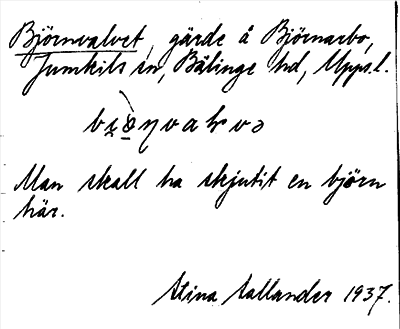 Björnvalvet, gärde å Björnarbo,
Jumkils sn, Bälinge hd, Upps.l.
Man skall ha skjutit en björn
här.
Stina Sallander 1937.